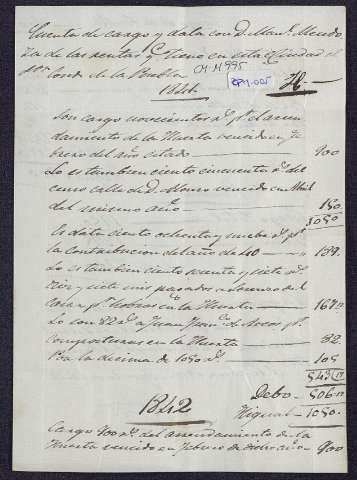 Cuenta de cargo y data con D. Man.l Mendo
za de las rentas q.e tiene en esta Ciudad el
Sor. Conde de la Puebla
CM M 995
1841
Son cargo novecientos r.s p.r el arren
damiento de la Huerta vencido en Fe
brero del año citado 900
Lo es tambien ciento cincuenta r.s del
censo calle de D. Alonso vencido en Abril
del mismo año 150
1050
Es data ciento ochenta y nueve r.s p.r
la contribucion del año de 40 189
Lo es tambien ciento sesenta y siete r.s
diez y siete mrs pagados a Lorenzo del
p.r obras en la Huerta 167,,17
Lo son 82 r.s a Juan de p.r
composturas en la Huerta 82
Por la decima de 1050 r.s 105
543,,17
Debo 506,,17
Higual 1050
1842
Cargo 900 r.s del arrendamiento de la
Huerta vencido en Febrero de dicho año 900